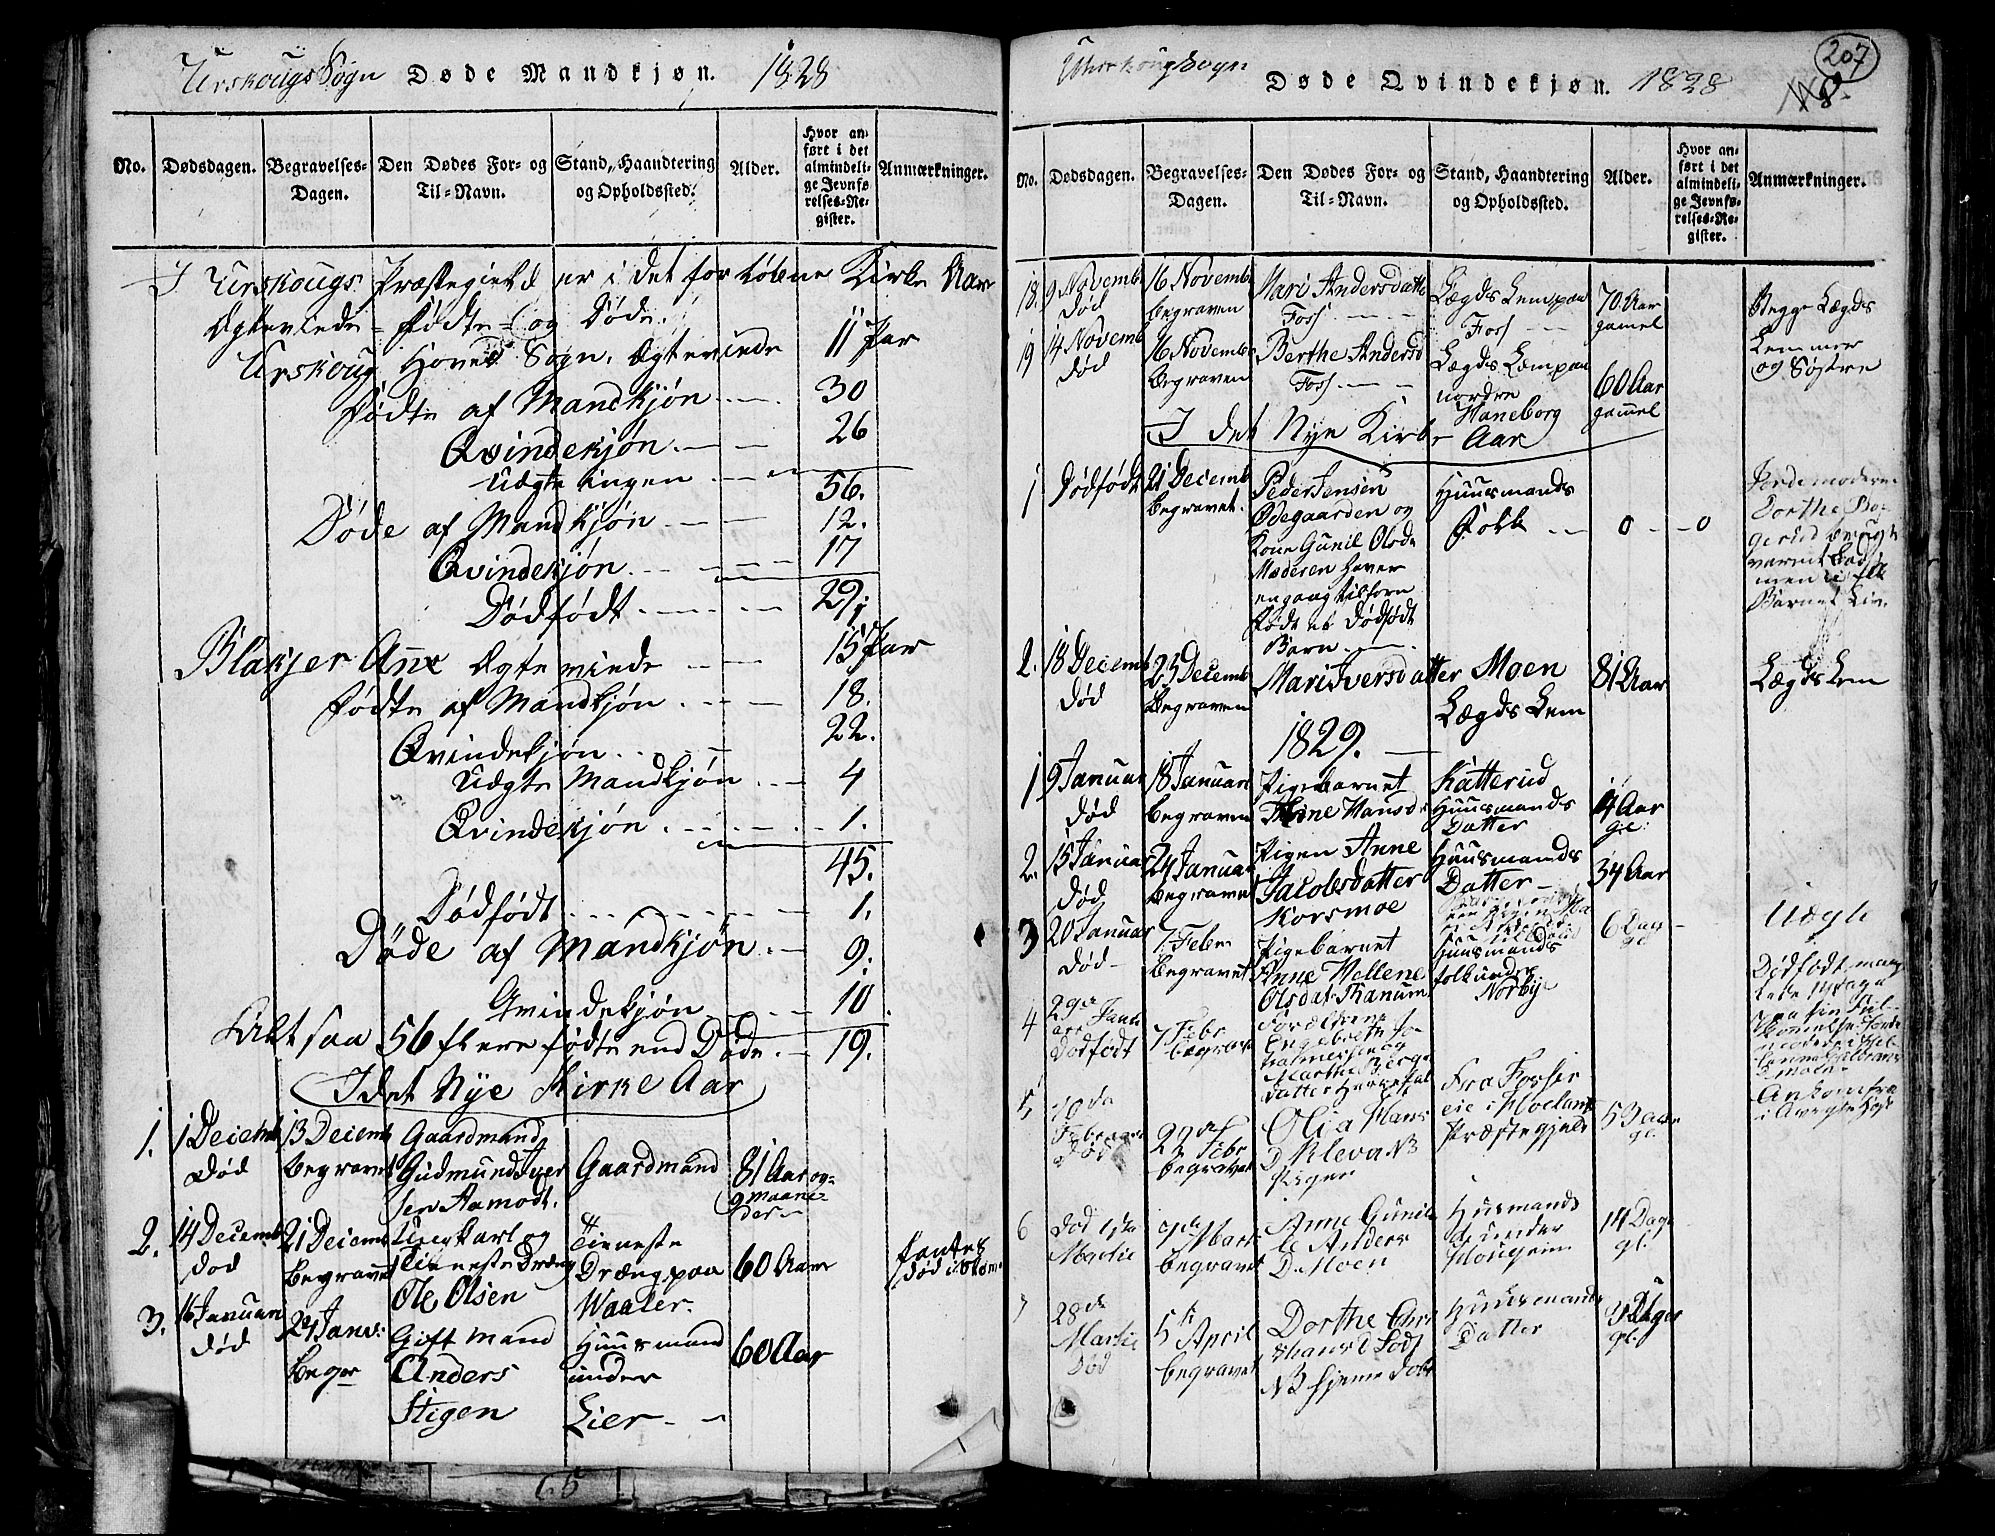 Urskougs Sogn Døde Mandkjøn. 1828
No. Dødsdagen. Begravelses-Dagen. Den Dødes For- og Til-Navn. Stand, Haandtering og Opholdssted. Alder. Hvor anført i det almindelige Jevnførelses-Register. Anmærkninger.
I Urskougs Præstegield er i det forløbne Kirke Aar
Ægteviede - fødte - og Døde.
Urskoug Hoved Sogn. Ægteviede 11 Par
fødte af Mandkjøn 30
Qvindekjøn 26
Uægte ingen
56.
Døde af Mandkjøn 12.
Qvindekjøn 17
29
Dødfødt 1
Blakjer Anx Ægteviede 15 Par
fødte af Mandkjøn 18.
Qvindekjøn 22.
Uægte Mandkjøn 4
Qvindekjøn 1.
45.
Dødfødt 1.
Døde af Mandkjøn 9.
Qvindekjøn 10.
Altsaa 56 flere fødte end Døde. 19.
I det Nye Kirke Aar
1. 1 Decemb Død
13 Decemb begravet
Gaardmand Gudmund Iversen Aamodt.
Gaardmand
81 Aar og 9 Maaneder
2. 14 Decemb død
21 Decemb begravet
Ungkarl og Tieneste Dreng Ole Olsen
Tieneste Dræng paa Waaler.
60 Aar
3. 16 Januari død
24 Janv: begr
Gift mand Anders Stigen
Huusmand under Lier
60 Aar
65
Urskoug Sogn Døde Qvindekjøn. 1828
207
8
No. Dødsdagen. Begravelses-Dagen. Den Dødes For- og Til-Navn. Stand, Haandtering og Opholdssted. Alder. Hvor anført i det almindelige Jevnførelses-Register. Anmærkninger.
18 9 Novemb Død
16 Novemb begraven
Mari Andersdatte Foss
Lægds Lem paa Foss
70 Aar gamel
Begge Lægds Lemmer og Søstre
19 14 Novemb død
16 Novemb begraven
Berthe Andersd Foss
Lægds Lem paa nordre Haneborg
60 Aar gamel
I det Nye Kirke Aar
1 Dødfødt
21 Decemb begravet.
Peder Jensen Ødegaarden og Kone Gunil Olsda Moderen haver engang tilforn født et Dødfødt Barn
Huusmands Folk
0 0
Jordemoderen Dorthe
Barnet Liv.
2. 18 Decemb død
25 Decemb Begraven
Mari Iversdatter Moen
Lægds Lem
81 Aar
Lægds Lem
1829.
1 9 Januar død
18 Januari begraven
Pigebarnet Hansd
Katterud Huusmands Datter
4 Aar gl:
2. 15 Januar død
24 Januar begravet
Pigen Anne Jacobsdatter Korsmoe
Huusmands Datter
34 Aar
3 20 Januar død
7 Febr begravet
Pigebarnet Anne Hellene Olsdat
Huusmands folk under Norbye
6 Dag gl
Uægte
4 29de Januar Dødfødt
7 Febr begravet
Forældrene Engebrett
Marthe
5 10da Februar Død
22de Febr begravet
Olia Hans D Kleva NB Piger
Fra Fosser eie i Høeland Præstegjeld
53 aar gl.
6 død 1ste Martie
7de Mart begravet
Anne Gunild Anders D Moen
Husmands under
14 Dage gl.
7 28de Martie Død
5te April begravet
Dorthe Chri
NB hjemme døbt
Huusmands Datter
gl.